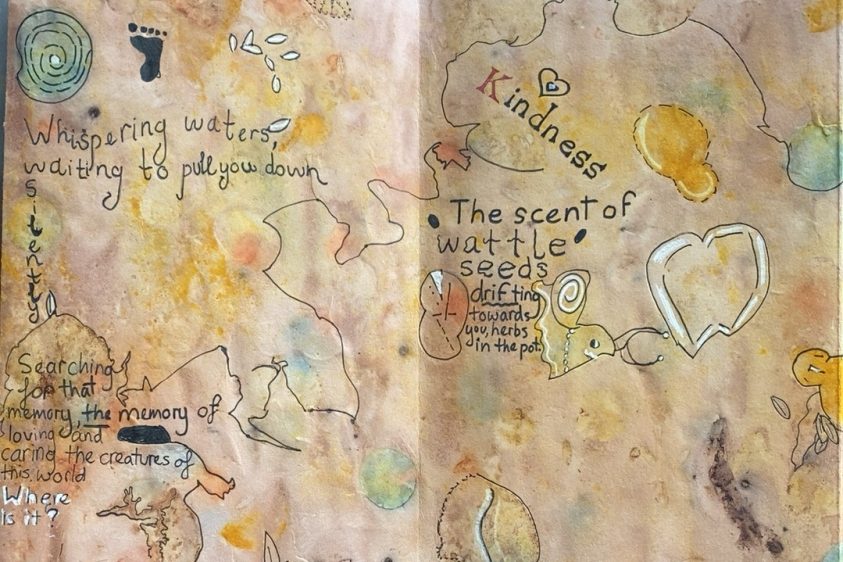 Whispering waters,
waiting to pull you down
Searching
for that
memory, the memory of
loving and
caring the creatures of
this world
Where
Is it?
Kindness
The scent of
wattle
seeds
drifting
towards
you, herbs
in the pot